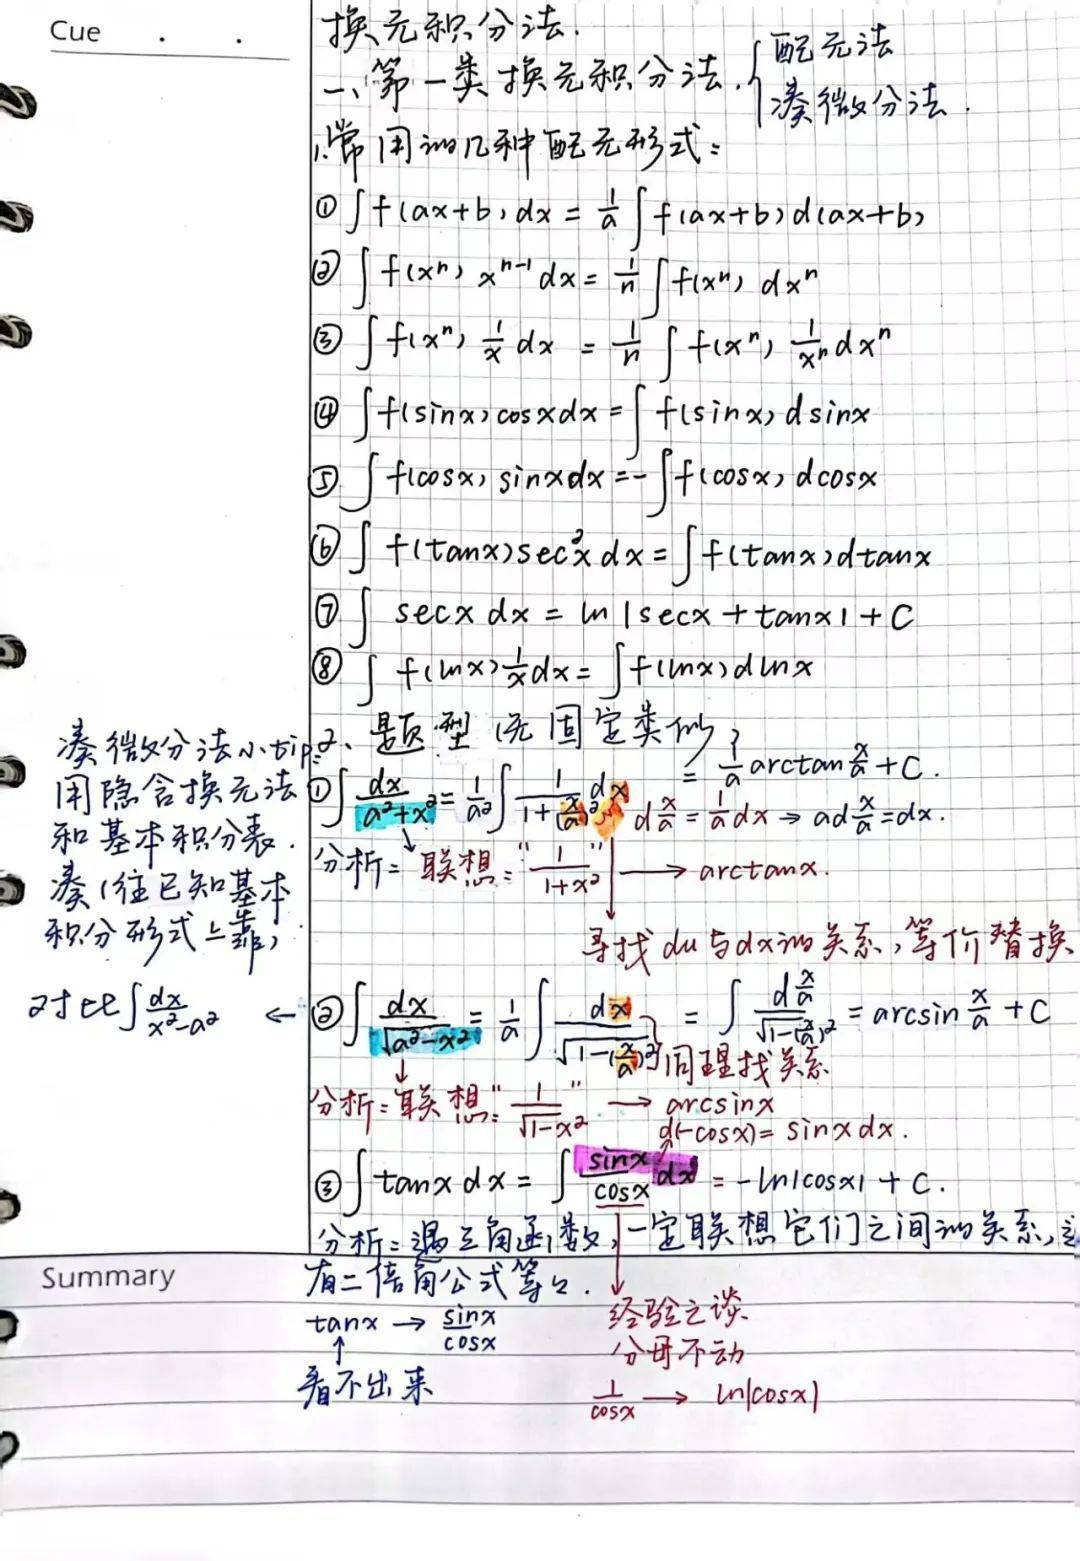 Cue
换元积分法.
一、第一类换元积分法. { 配元法
凑微分法.
1.常用的几种配元形式:
① ∫f(ax+b)dx = 1/a ∫f(ax+b)d(ax+b)
② ∫f(xⁿ) xⁿ⁻¹dx = 1/n ∫f(xⁿ) dxⁿ
③ ∫f(xⁿ) 1/x dx = 1/n ∫f(xⁿ) 1/xⁿ dxⁿ
④ ∫f(sinx)cosxdx = ∫f(sinx)dsinx
⑤ ∫f(cosx)sinxdx = -∫f(cosx)dcosx
⑥ ∫f(tanx)sec²xdx = ∫f(tanx)dtanx
⑦ ∫secxdx = ln|secx+tanx|+C
⑧ ∫f(lnx) 1/x dx = ∫f(lnx)dlnx
2、题型(无固定类似)
① ∫dx/(a²+x²) = 1/a² ∫1/(1+(x/a)²) dx = 1/a arctan x/a + C.
d x/a = 1/a dx → ad x/a = dx.
分析: 联想:"1/(1+x²)" → arctanx.
寻找du与dx的关系,等价替换
凑微分法小tip:
用隐含换元法
和基本积分表.
凑(往已知基本
积分形式上靠)
对比∫dx/(x²-a²) ←
② ∫dx/√(a²-x²) = 1/a ∫dx/√(1-(x/a)²) = ∫d x/a /√(1-(x/a)²) = arcsin x/a + C
同理找关系
分析: 联想:"1/√(1-x²)" → arcsinx
d(-cosx) = sinxdx.
③ ∫tanxdx = ∫sinx/cosx dx = -ln|cosx| + C.
分析:遇三角函数,一定联想它们之间的关系,
有二倍角公式等等.
Summary
tanx → sinx/cosx
↑
看不出来
经验之谈
分母不动
1/cosx → ln|cosx|